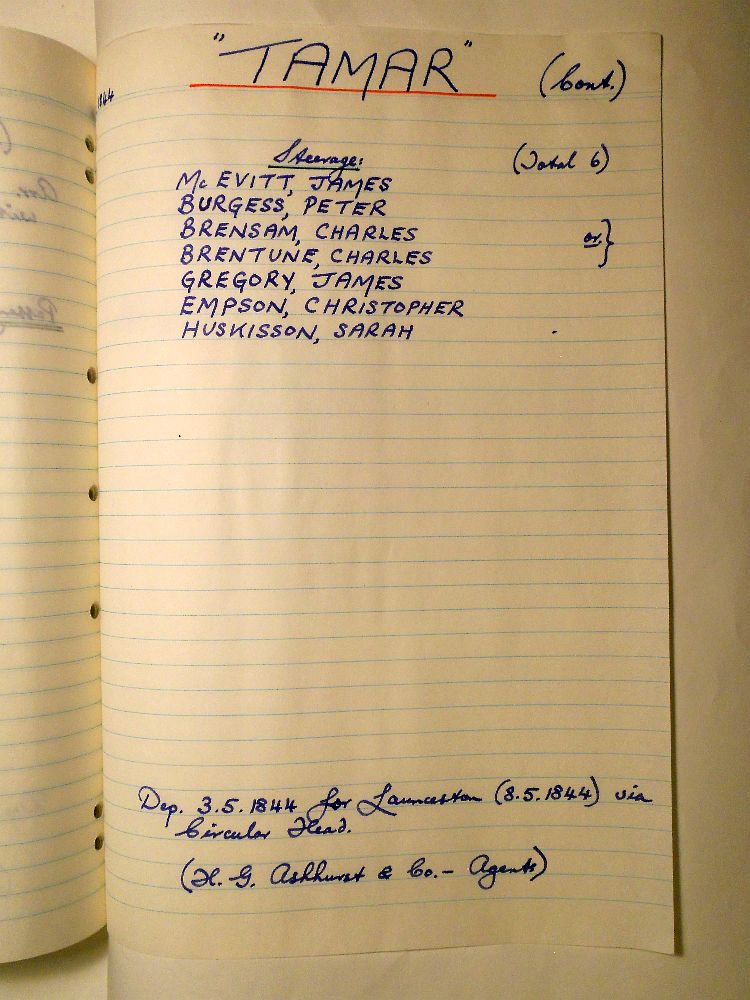 "TAMAR" (Cont.)
1844
Steerage: (Total 6)
Mc EVITT, JAMES
BURGESS, PETER
BRENSAM, CHARLES
or }
BRENTUNE, CHARLES
GREGORY, JAMES
EMPSON, CHRISTOPHER
HUSKISSON, SARAH
Dep. 3.5.1844 for Launceston (8.5.1844) via
Circular Head.
(H. G. Ashhurst & Co. - Agents)